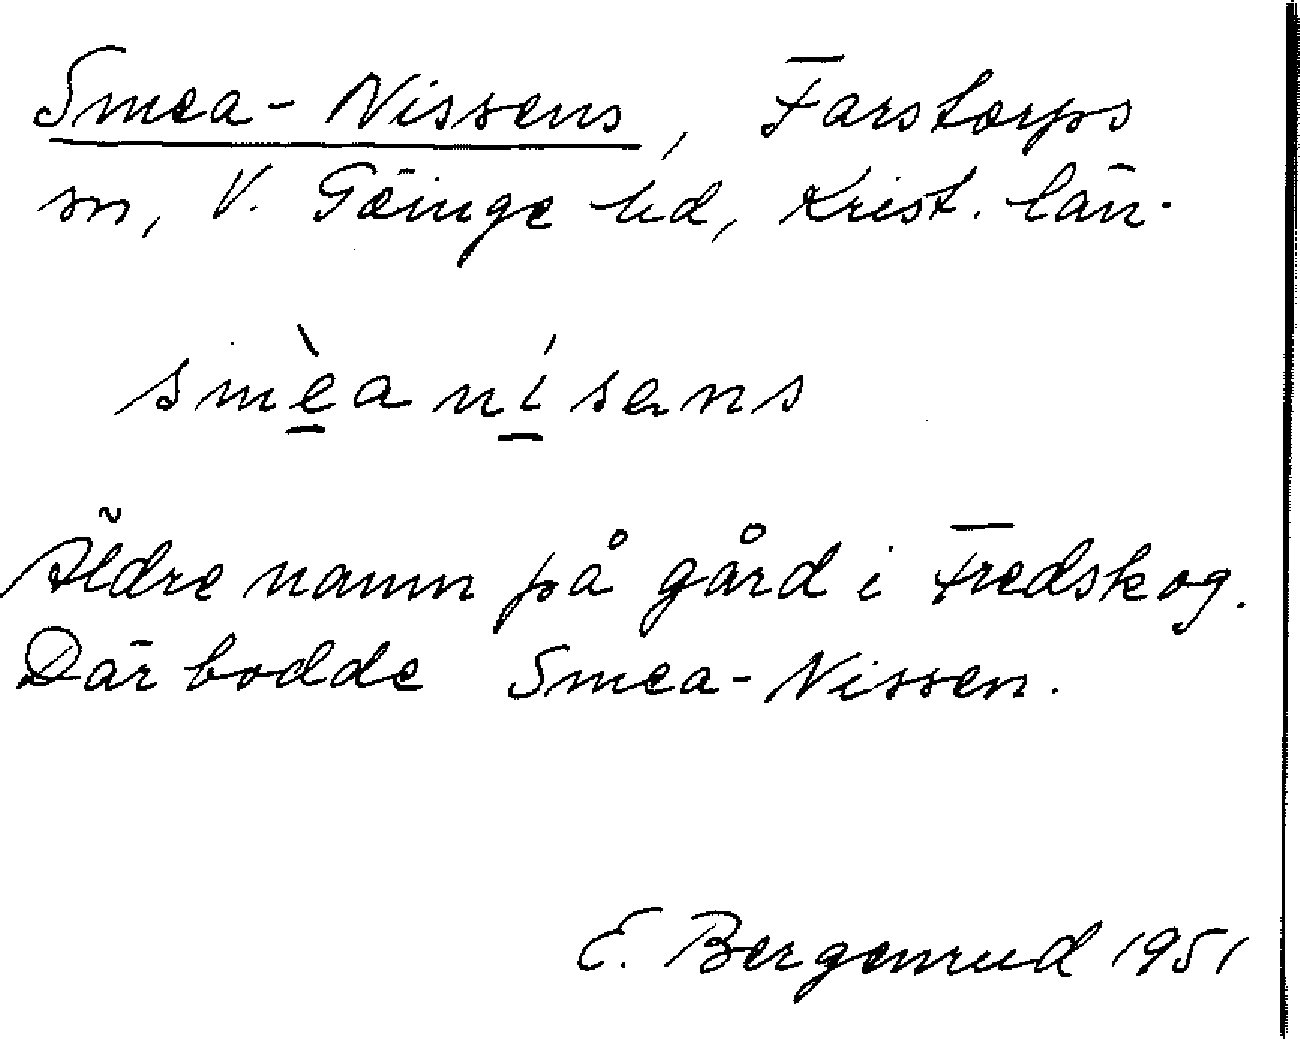 Smea-Nissens, Farstorps
sn, V. Göinge hd, Krist. län.
smèanísens
Äldre namn på gård i Fredskog.
Där bodde Smea-Nissen.
E. Bergenrud 1951